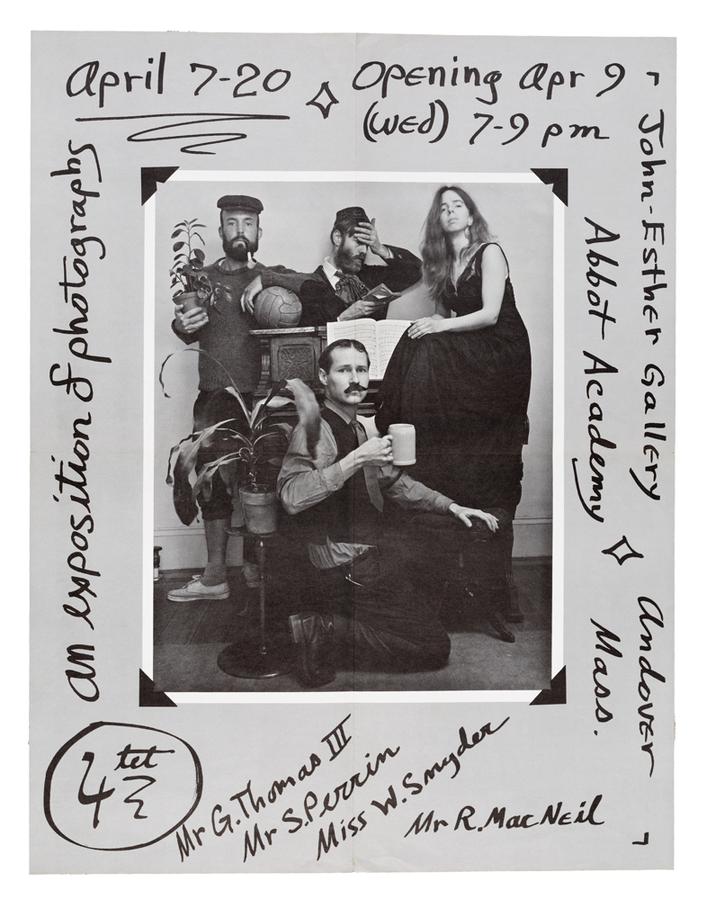 April 7-20
Opening Apr 9
(Wed) 7-9 pm
John-Esther Gallery
Abbot Academy
Andover
Mass.
an exposition of photographs
4tet
Mr G. Thomas III
Mr S. Perrin
Miss W. Snyder
Mr R. MacNeil